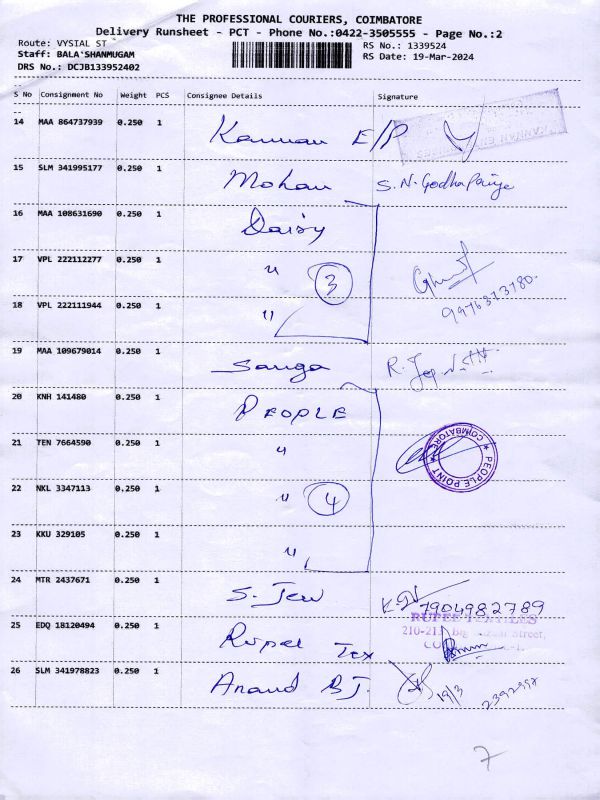 THE PROFESSIONAL COURIERS, COIMBATORE
Delivery Runsheet - PCT - Phone No.:0422-3505555 - Page No.:2
Route: VYSIAL ST
Staff: BALA SHANMUGAM
DRS No.: DCJB133952402
RS No.: 1339524
RS Date: 19-Mar-2024
S No Consignment No Weight PCS Consignee Details Signature
14 MAA 864737939 0.250 1 Kannan E/P
15 SLM 341995177 0.250 1 Mohan S.N.Godhapriya
16 MAA 108631690 0.250 1 Daisy
17 VPL 222112277 0.250 1 " 3
9976373780
18 VPL 222111944 0.250 1 "
19 MAA 109679014 0.250 1 Sanga R.
20 KNH 141480 0.250 1 PEOPLE
21 TEN 7664590 0.250 1 " PEOPLE POINT COIMBATORE
22 NKL 3347113 0.250 1 " 4
23 KKU 329105 0.250 1 "
24 MTR 2437671 0.250 1 S. Jew 7904982789
25 EDQ 18120494 0.250 1 Rupee Tex RUPEE TEXTILES
210-211, Big Street,
26 SLM 341978823 0.250 1 Anand B J. 19/3
7